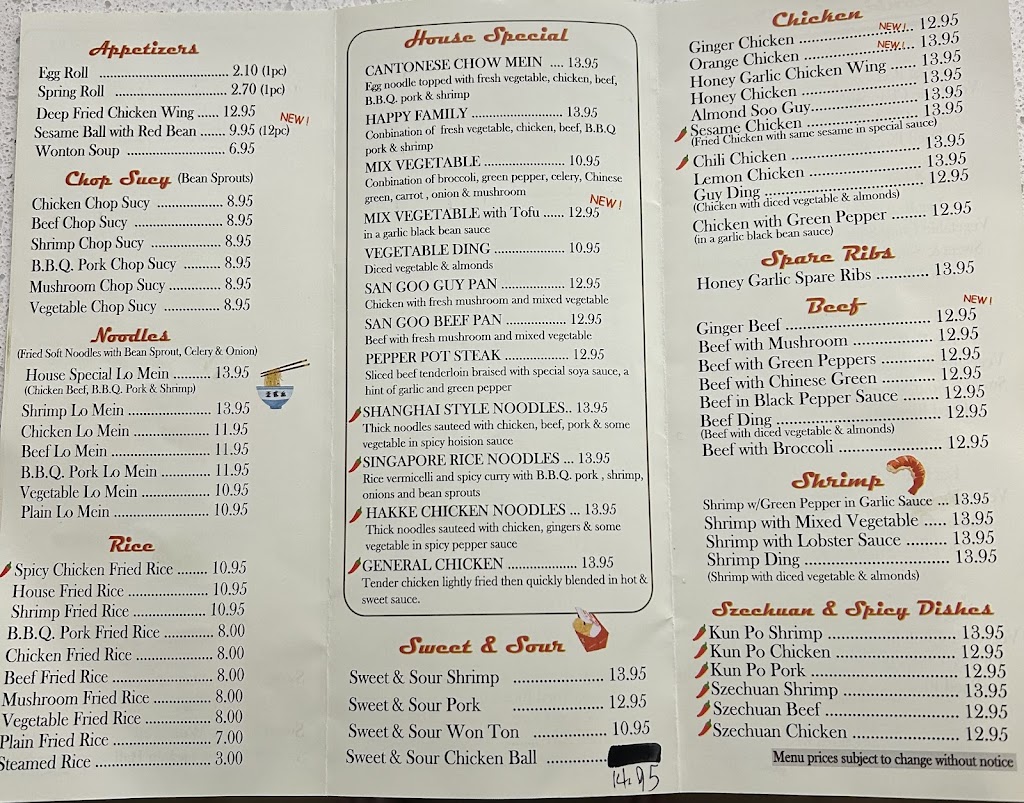 Appetizers
Egg Roll ............................ 2.10 (1pc)
Spring Roll ........................ 2.70 (1pc)
Deep Fried Chicken Wing ...... 12.95
NEW!
Sesame Ball with Red Bean ....... 9.95 (12pc)
Wonton Soup ..................... 6.95
Chop Sucy (Bean Sprouts)
Chicken Chop Sucy .............. 8.95
Beef Chop Sucy ................... 8.95
Shrimp Chop Sucy ................ 8.95
B.B.Q. Pork Chop Sucy .......... 8.95
Mushroom Chop Sucy ............. 8.95
Vegetable Chop Sucy ............. 8.95
Noodles
(Fried Soft Noodles with Bean Sprout, Celery & Onion)
House Special Lo Mein .......... 13.95
(Chicken Beef, B.B.Q. Pork & Shrimp)
Shrimp Lo Mein ..................... 13.95
Chicken Lo Mein .................... 11.95
Beef Lo Mein ......................... 11.95
B.B.Q. Pork Lo Mein ............. 11.95
Vegetable Lo Mein ................ 10.95
Plain Lo Mein ........................ 10.95
Rice
Spicy Chicken Fried Rice ........ 10.95
House Fried Rice .................... 10.95
Shrimp Fried Rice .................. 10.95
B.B.Q. Pork Fried Rice ............ 8.00
Chicken Fried Rice .................. 8.00
Beef Fried Rice ....................... 8.00
Mushroom Fried Rice .............. 8.00
Vegetable Fried Rice ............... 8.00
Plain Fried Rice ...................... 7.00
Steamed Rice .......................... 3.00
House Special
CANTONESE CHOW MEIN .... 13.95
Egg noodle topped with fresh vegetable, chicken, beef,
B.B.Q. pork & shrimp
HAPPY FAMILY ........................ 13.95
Conbination of fresh vegetable, chicken, beef, B.B.Q
pork & shrimp
MIX VEGETABLE ..................... 10.95
Conbination of broccoli, green pepper, celery, Chinese
green, carrot , onion & mushroom
NEW!
MIX VEGETABLE with Tofu ...... 12.95
in a garlic black bean sauce
VEGETABLE DING ..................... 10.95
Diced vegetable & almonds
SAN GOO GUY PAN .................. 12.95
Chicken with fresh mushroom and mixed vegetable
SAN GOO BEEF PAN ................ 12.95
Beef with fresh mushroom and mixed vegetable
PEPPER POT STEAK ................. 12.95
Sliced beef tenderloin braised with special soya sauce, a
hint of garlic and green pepper
SHANGHAI STYLE NOODLES.. 13.95
Thick noodles sauteed with chicken, beef, pork & some
vegetable in spicy hoision sauce
SINGAPORE RICE NOODLES ... 13.95
Rice vermicelli and spicy curry with B.B.Q. pork , shrimp,
onions and bean sprouts
HAKKE CHICKEN NOODLES ... 13.95
Thick noodles sauteed with chicken, gingers & some
vegetable in spicy pepper sauce
GENERAL CHICKEN ................... 13.95
Tender chicken lightly fried then quickly blended in hot &
sweet sauce.
Sweet & Sour
Sweet & Sour Shrimp ................... 13.95
Sweet & Sour Pork ................... 12.95
Sweet & Sour Won Ton ............... 10.95
Sweet & Sour Chicken Ball ............
14.95
Chicken
Ginger Chicken ............ NEW!.. 12.95
Orange Chicken ............ NEW!.. 13.95
Honey Garlic Chicken Wing ...... 13.95
Honey Chicken ........................ 13.95
Almond Soo Guy...................... 13.95
Sesame Chicken ...................... 13.95
(Fried Chicken with same sesame in special sauce)
Chili Chicken .......................... 13.95
Lemon Chicken ...................... 13.95
Guy Ding ............................... 12.95
(Chicken with diced vegetable & almonds)
Chicken with Green Pepper ........ 12.95
(in a garlic black bean sauce)
Spare Ribs
Honey Garlic Spare Ribs ............ 13.95
Beef
NEW!
Ginger Beef ............................. 12.95
Beef with Mushroom ................ 12.95
Beef with Green Peppers ........... 12.95
Beef with Chinese Green ........... 12.95
Beef in Black Pepper Sauce ....... 12.95
Beef Ding ............................... 12.95
(Beef with diced vegetable & almonds)
Beef with Broccoli .................... 12.95
Shrimp
Shrimp w/Green Pepper in Garlic Sauce ... 13.95
Shrimp with Mixed Vegetable ..... 13.95
Shrimp with Lobster Sauce ......... 13.95
Shrimp Ding ............................. 13.95
(Shrimp with diced vegetable & almonds)
Szechuan & Spicy Dishes
Kun Po Shrimp .......................... 13.95
Kun Po Chicken ........................ 12.95
Kun Po Pork ............................. 12.95
Szechuan Shrimp ....................... 13.95
Szechuan Beef .......................... 12.95
Szechuan Chicken ...................... 12.95
Menu prices subject to change without notice